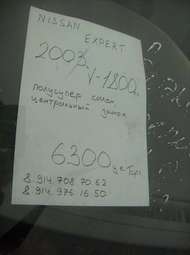 NISSAN
EXPERT
2003.
V-1800.
полусупер салон,
центральный замок
6300 уе Торг
8.914.708 70.62
8 914.976 16.50